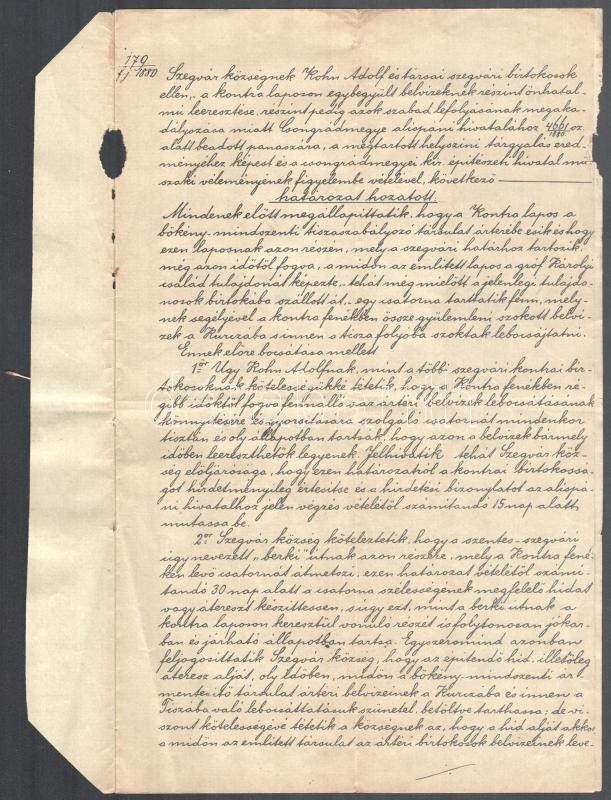 179
fj 1880.
Szegvár községnek Kohn Adolf és társai szegvári birtokosok
ellen, a kontra laposon egybegyült belvizeknek részint önhatal-
mú leeresztése, részint pedig azok szabad lefolyásának megaka-
dályozása miatt Csongrádmegye alispáni hivatalához 4661/1880. sz.
alatt beadott panaszára, a megtartott helyszini tárgyalás ered-
ményéhez képest és a csongrádmegyei kir. épitészeti hivatal mü-
szaki véleményének figyelembe vételével, következő
határozat hozatott:
Mindenek előtt megállapittatik, hogy a Kontra lapos a
bökény-mindszenti tiszaszabályozó társulat árterébe esik és hogy
ezen laposnak azon részén, mely a szegvári határhoz tartozik,
még azon időtől fogva, a midőn az emlitett lapos a gróf Károlyi
család tulajdonát képezte, tehát meg mielőtt a jelenlegi tulajdo-
nosok birtokába szállott át, egy csatorna tartatik fenn, mely-
nek segélyével a kontra fenékben összegyülemleni szokott belvi-
zek a Kurczába s innen a tisza folyóba szoktak lebocsájtatni.
Ennek előre bocsátása mellett
1ör Ugy Kohn Adolfnak, mint a többi szegvári kontrai bir-
tokosuknak kötelességükké tétetik, hogy a Kontra fenékben ré-
gibb időktől fogva fennálló s az ártéri belvizek lebocsátásának
könnyitésére és gyorsitására szolgáló csatornát mindenkor
tisztán és oly állapotban tartsák, hogy azon a belvizek bármely
időben leereszthetők legyenek. Felhivatik tehát Szegvár köz-
ség elöljárósága, hogy ezen határozatról a kontrai birtokossá-
got hirdetményileg értesitse és a hirdetési bizonylatot az alispá-
ni hivatalhoz jelen végzés vételétől számitandó 15 nap alatt,
mutassa be.
2or Szegvár község köteleztetik, hogy a szentes-szegvári
úgy nevezett „berki” útnak azon részére, mely a Kontra fené-
ken levő csatornát átmetszi, ezen határozat vételétől számi-
tandó 30 nap alatt a csatorna szélességének megfelelő hidat
vagy átereszt készittessen, s úgy ezt, mint a berki útnak a
kontra laposon keresztül vonuló részét is folytonosan jókar-
ban és járható állapotban tartsa. Egyszersmind azonban
feljogosittatik Szegvár község, hogy az épitendő hid, illetőleg
áteresz alját, oly időben, midőn a bökény-mindszenti ár-
mentesitő társulat ártéri belvizeinek a Kurczába és innen a
Tiszába való lebocsáttatásuk szünetel, betöltve tarthassa; de vi-
szont kötelességévé tétetik a községnek az, hogy a hid alját akko-
a midőn az emlitett társulat az ártéri birtokosok belvizeinek leve-